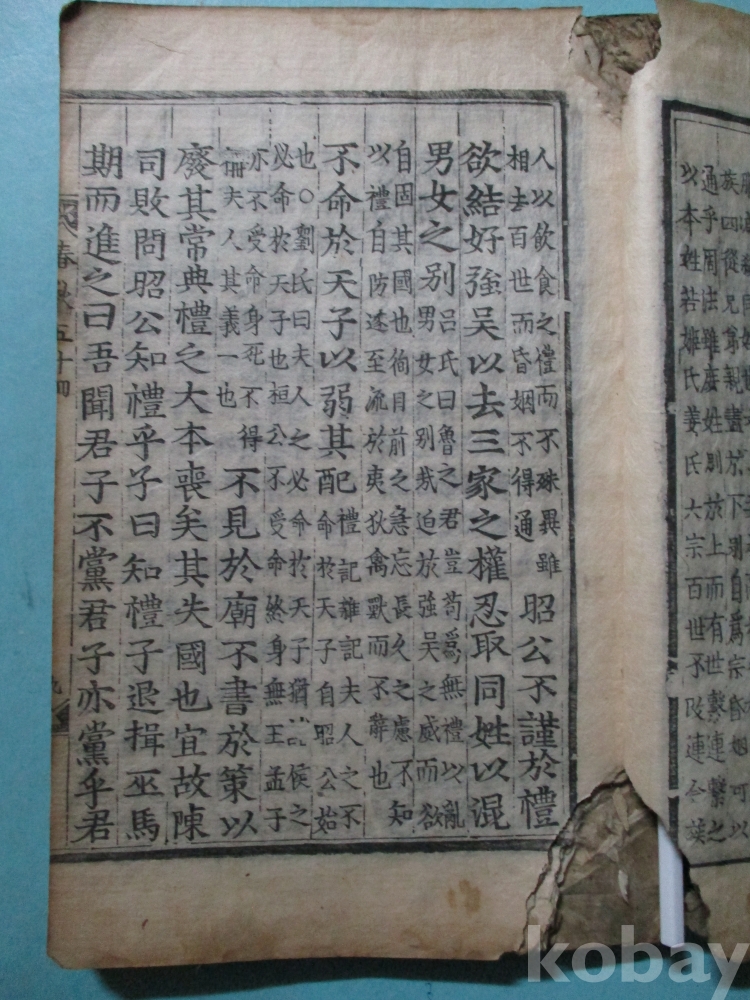 族四從兄弟親盡於下別自爲宗昏姻可以
通乎周法雖庶姓別於上而有世繫連繫之
以本姓若姬氏姜氏大宗百世不改連合族
人以飲食之禮而不殊異雖
相去百世而昏姻不得通
昭公不謹於禮
欲結好強吳以去三家之權忍取同姓以混
男女之別
呂氏曰魯之君豈苟爲無禮以亂
男女之別哉迫於強吳之威而欲
自固其國也徇目前之急忘長久之慮不知
以禮自防遂至流於夷狄禽獸而不辭也
不命於天子以弱其配
禮記雜記夫人之不
命於天子自昭公始
也○劉氏曰夫人之必命於天子猶侯之
必命於天子也桓公不受命終身無王孟子
亦不受命身死不得
冊夫人其義一也
不見於廟不書於策以
廢其常典禮之大本喪矣其失國也宜故陳
司敗問昭公知禮乎子曰知禮子退揖巫馬
期而進之曰吾聞君子不黨君子亦黨乎君
春秋五十四
九
kobay